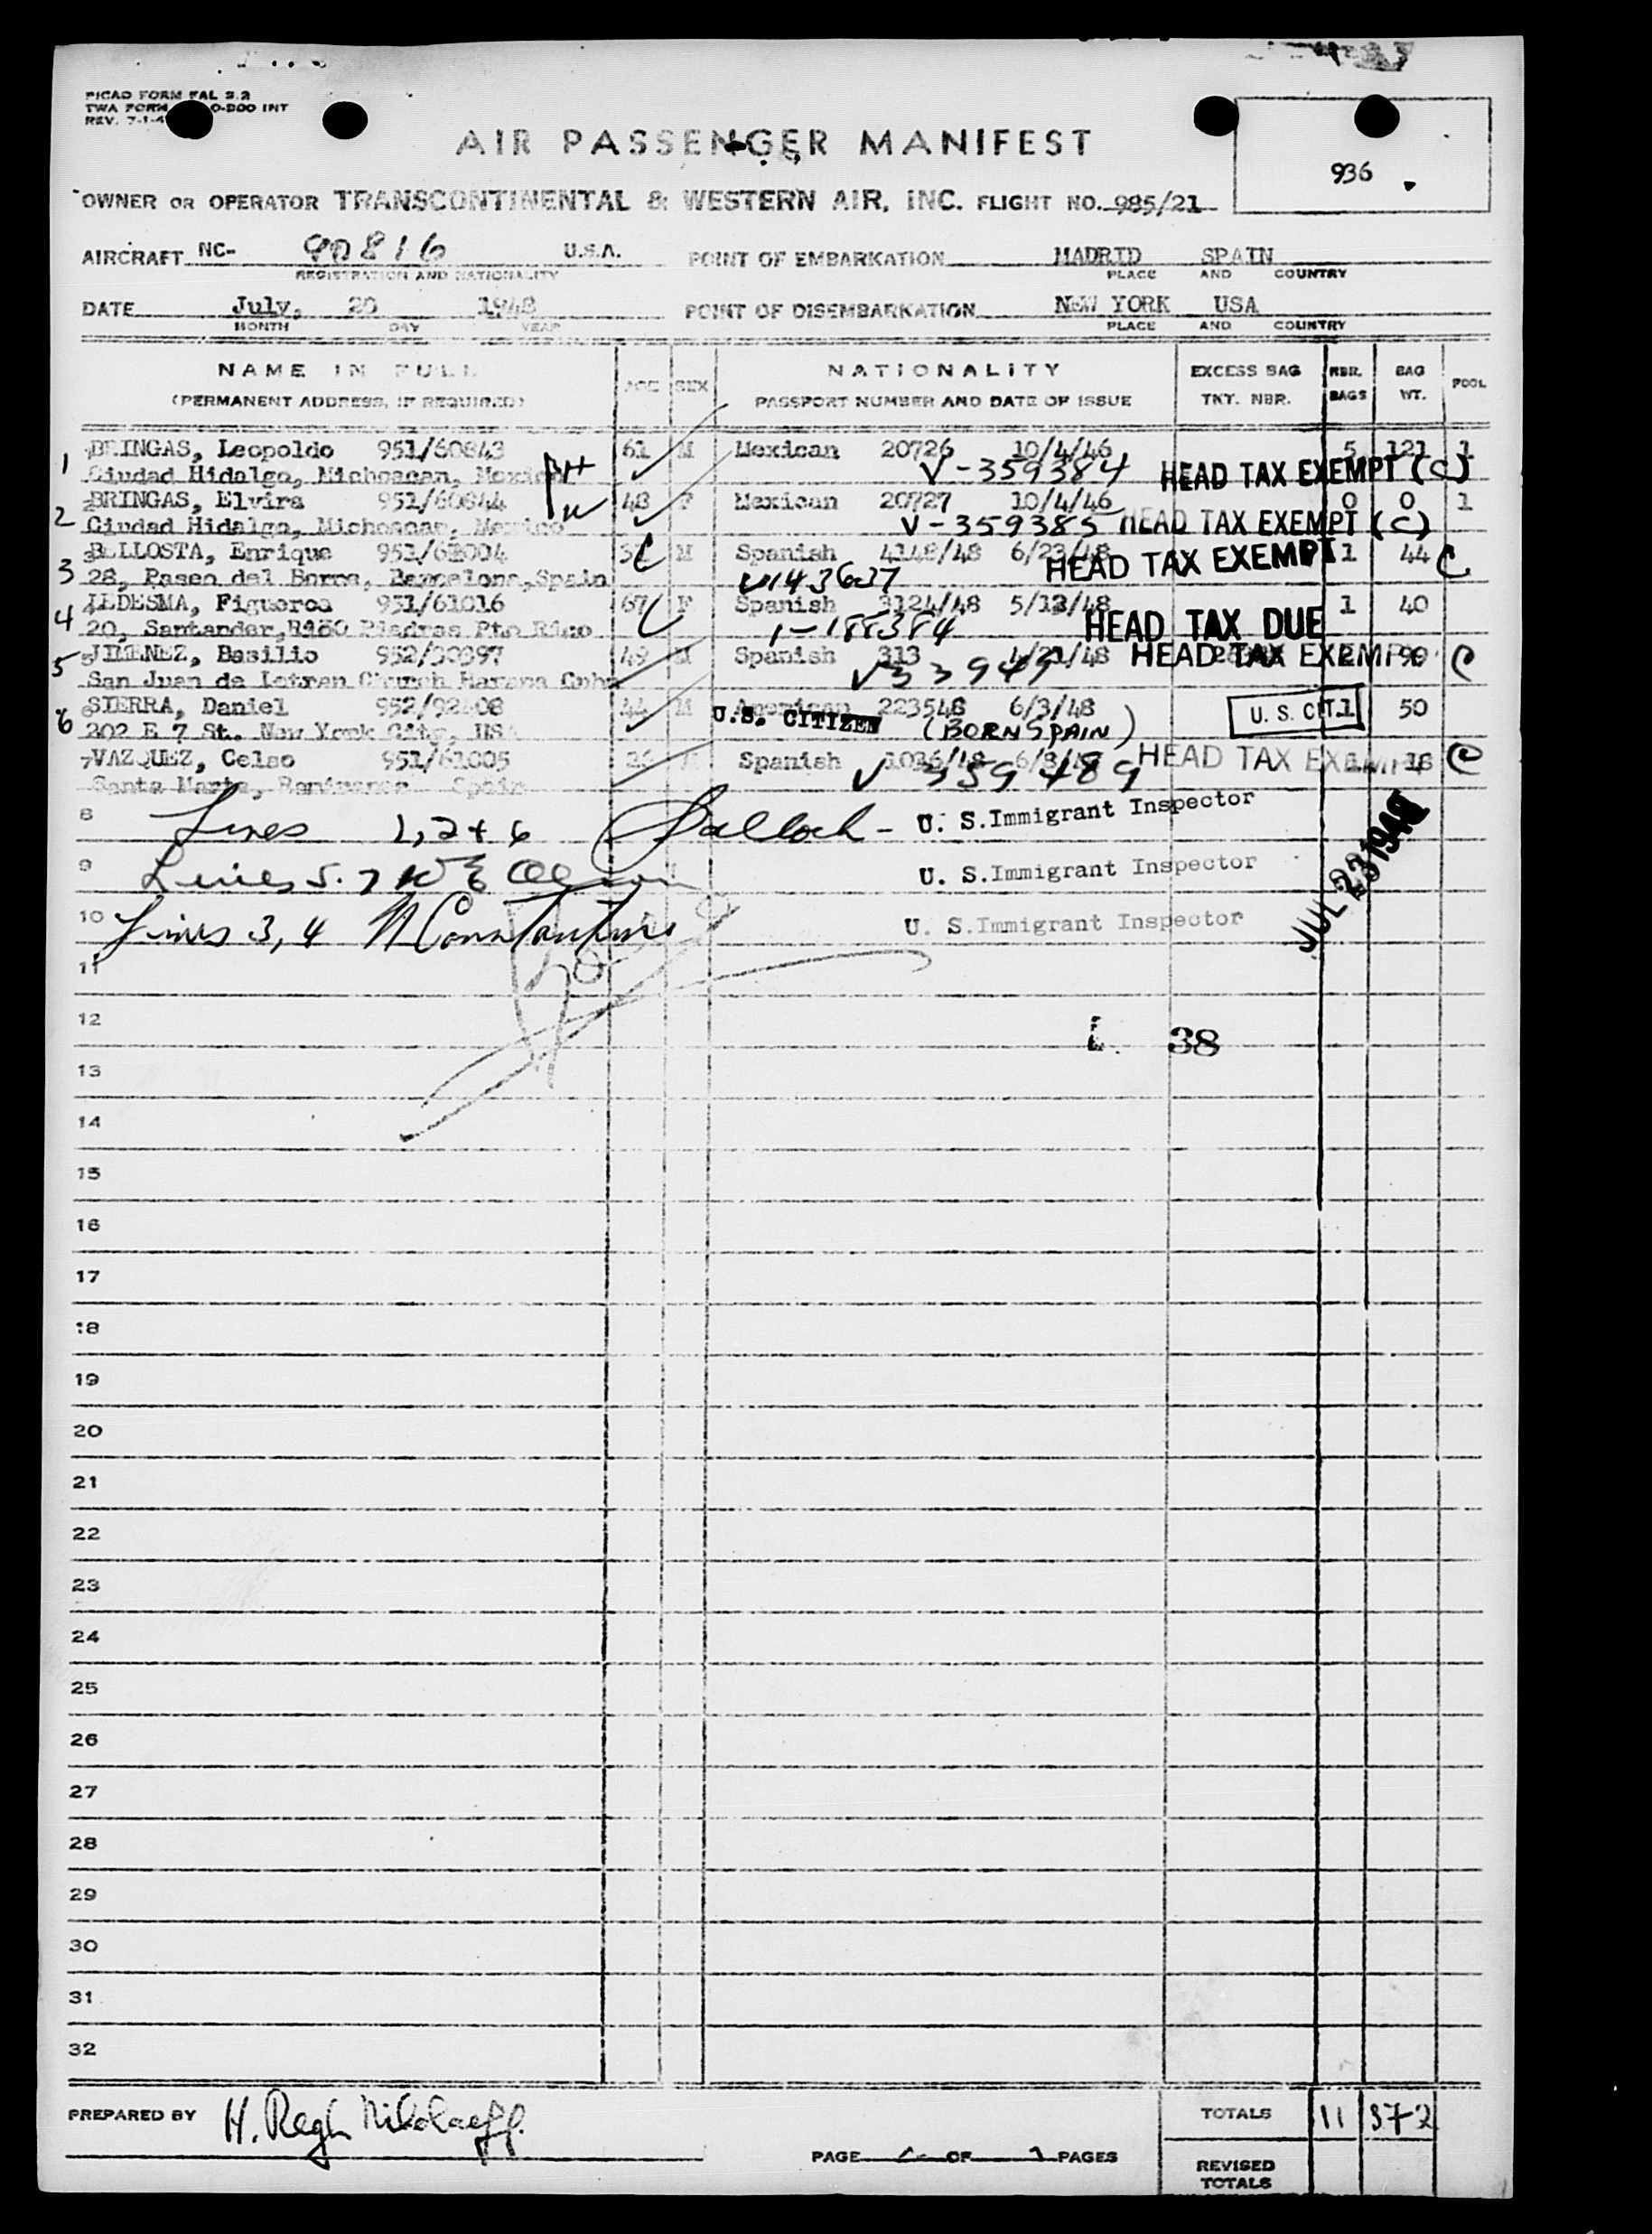 PICAO FORM FAL 2.2
TWA FORM O-200 INT
REV. 7-1-4
AIR PASSENGER MANIFEST
936
OWNER OR OPERATOR TRANSCONTINENTAL & WESTERN AIR, INC. FLIGHT NO. 985/21
AIRCRAFT NC- 90816 U.S.A. POINT OF EMBARKATION MADRID SPAIN
REGISTRATION AND NATIONALITY PLACE AND COUNTRY
DATE July, 20 1948 POINT OF DISEMBARKATION NEW YORK USA
MONTH DAY YEAR PLACE AND COUNTRY
NAME IN FULL AGE SEX NATIONALITY EXCESS BAG NBR. BAG POOL
(PERMANENT ADDRESS, IF REQUIRED) PASSPORT NUMBER AND DATE OF ISSUE TKT. NBR. BAGS WT.
1 BRINGAS, Leopoldo 951/60843 61 M Mexican 20726 10/4/46 5 121 1
Ciudad Hidalgo, Michoacan, Mexico V-359384 HEAD TAX EXEMPT (C)
2 BRINGAS, Elvira 951/60844 48 F Mexican 20727 10/4/46 0 0 1
Ciudad Hidalgo, Michoacan, Mexico V-359385 HEAD TAX EXEMPT (C)
3 BELLOSTA, Enrique 951/61004 M Spanish 4148/48 6/23/48 1 44 C
28, Paseo del Borne, Barcelona, Spain V143637 HEAD TAX EXEMPT
4 LEDESMA, Figueroa 951/61016 67 F Spanish 3124/48 5/13/48 1 40
20, Santander, Piedras Pto Rico 1-188384 HEAD TAX DUE
5 JIMENEZ, Basilio 952/30397 49 M Spanish 313 4/21/48 HEAD TAX EXEMPT 90 C
San Juan de Letran Church Havana Cuba V33949
6 SIERRA, Daniel 952/92408 44 M American 223548 6/3/48 U. S. CIT. 1 50
202 E 7 St. New York City, USA U.S. CITIZEN (BORN SPAIN)
7 VAZQUEZ, Celso 951/61005 26 M Spanish 1026/48 HEAD TAX EXEMPT 18 C
Santa Marta, Spain V 359489
8 Lines 1, 2 + 6 Balloch - U. S. Immigrant Inspector
9 Lines 5. 7 U. S. Immigrant Inspector
10 Lines 3, 4 U. S. Immigrant Inspector
JUL 23 1948
11
12
38
13
14
15
16
17
18
19
20
21
22
23
24
25
26
27
28
29
30
31
32
PREPARED BY H. Regh Nikolaeff. TOTALS 11 372
PAGE OF PAGES REVISED
TOTALS